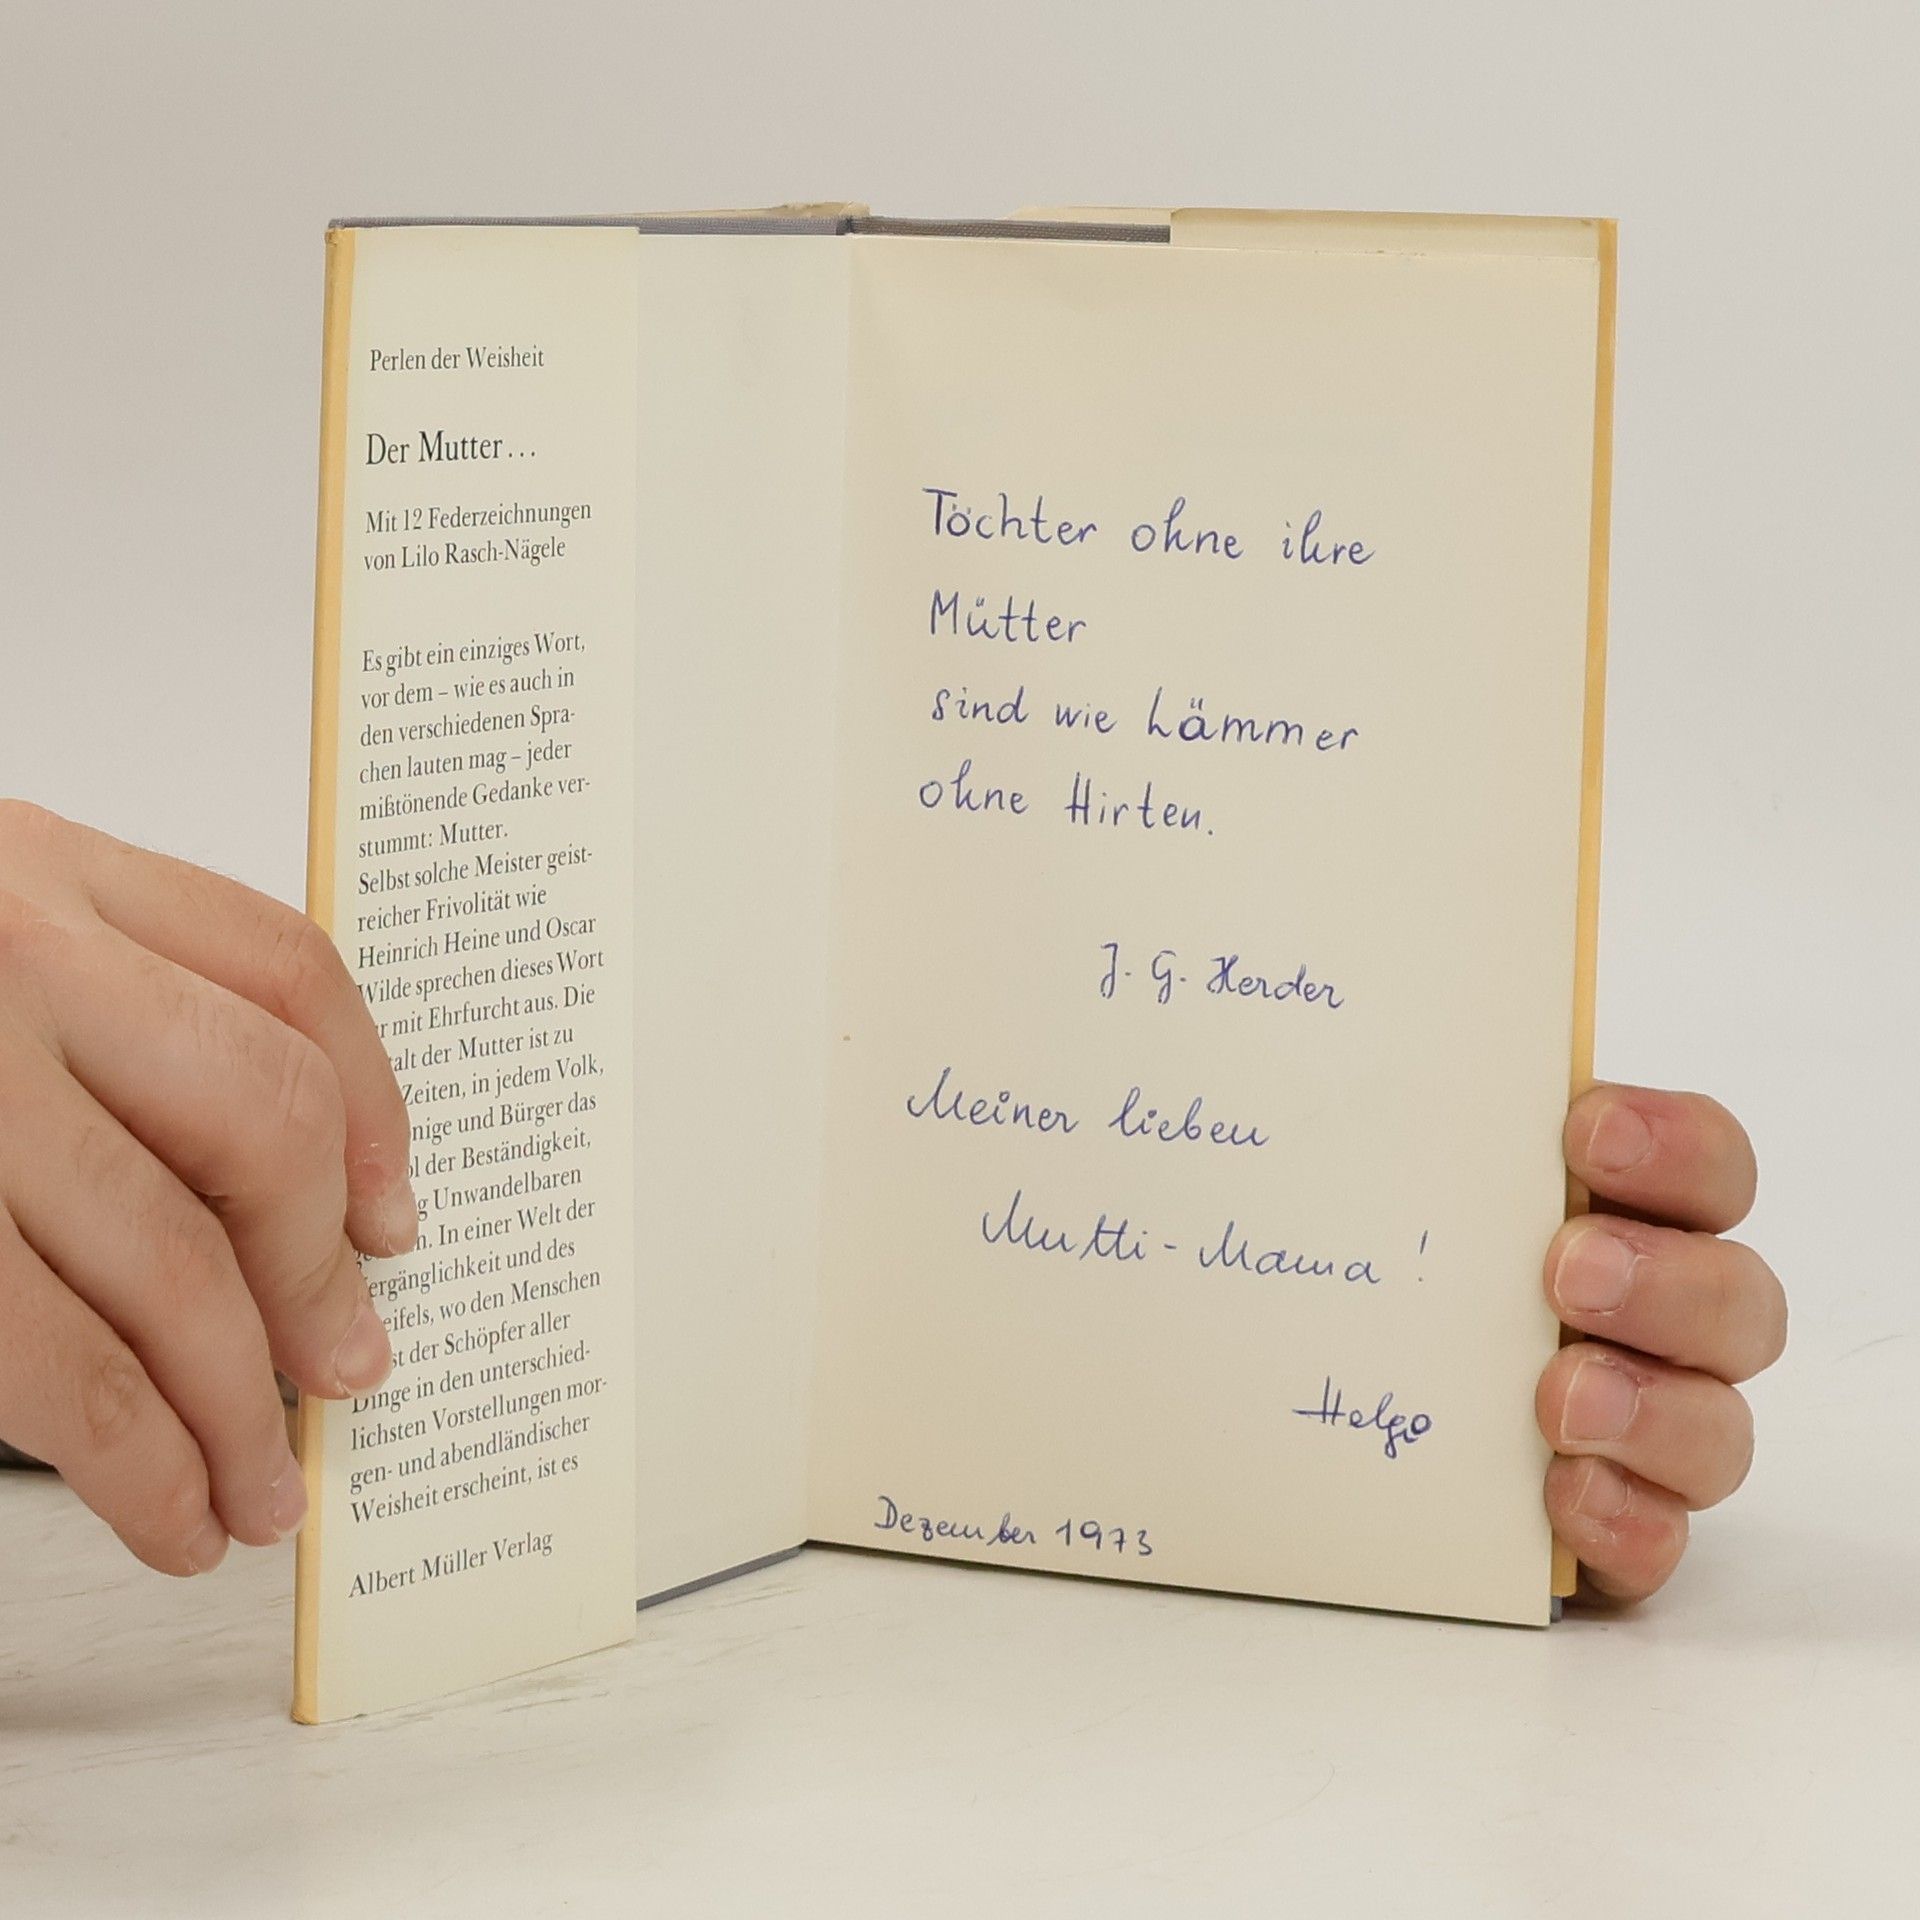 Perlen der Weisheit
Der Mutter...
Mit 12 Federzeichnungen
von Lilo Rasch-Nägele
Es gibt ein einziges Wort,
vor dem – wie es auch in
den verschiedenen Spra-
chen lauten mag – jeder
mißtönende Gedanke ver-
stummt: Mutter.
Selbst solche Meister geist-
reicher Frivolität wie
Heinrich Heine und Oscar
Wilde sprechen dieses Wort
mit Ehrfurcht aus. Die
der Mutter ist zu
Zeiten, in jedem Volk,
und Bürger das
der Beständigkeit,
Unwandelbaren
In einer Welt der
Vergänglichkeit und des
wo den Menschen
der Schöpfer aller
Dinge in den unterschied-
lichsten Vorstellungen mor-
gen- und abendländischer
Weisheit erscheint, ist es
Albert Müller Verlag
Töchter ohne ihre
Mütter
sind wie Lämmer
ohne Hirten.
J. G. Herder
Meiner lieben
Mutti - Mama !
Dezember 1973